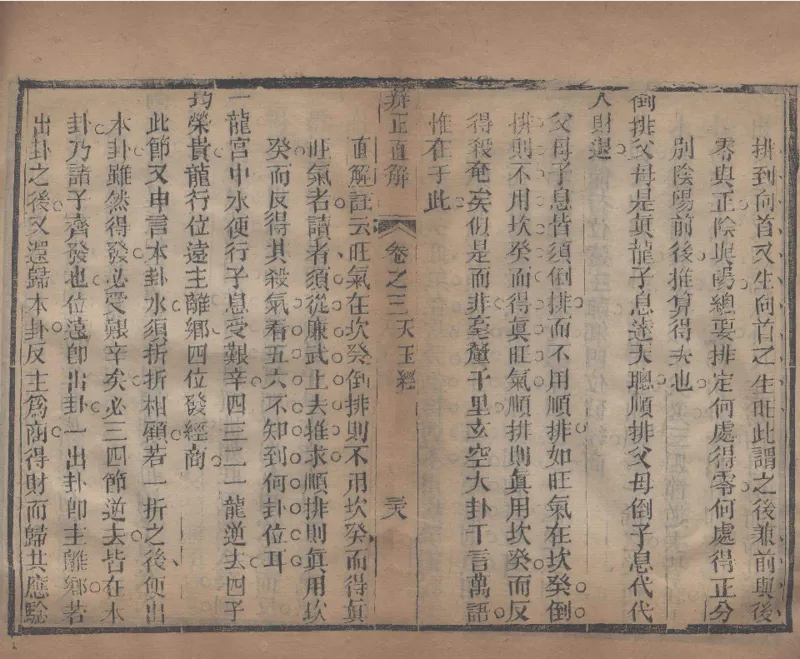 排到向首又生向首之生旺此謂之後兼前與後
零與正陰與陽總要排定何處得零何處得正分
別陰陽前後推算得夫也
倒排父母是眞龍子息達天聰順排父母倒子息代代
人財退
父母子息皆須倒排而不用順排如旺氣在坎癸倒
排則不用坎癸而得眞旺氣順排則眞用坎癸而反
得殺奄矣似是而非毫釐千里玄空大卦千言萬語
惟在于此
辨正直解 卷之三 天玉經
直解註云旺氣在坎癸倒排則不用坎癸而得眞
旺氣者讀者須從廉武上去推求順排則眞用坎
癸而反得其殺氣看五六不知到何卦位耳
一龍宮中水便行子息受艱辛四三二一龍逆去四子
均榮貴龍行位遠主離鄉四位發經商
此節又申言本卦水須折折相顧若一折之後便出
本卦雖然得發必受艱辛矣必三四節逆去皆在本
卦乃諸子齊發也位遠卽出卦一出卦卽主離鄉若
出卦之後又還歸本卦反主爲商得財而歸其應驗